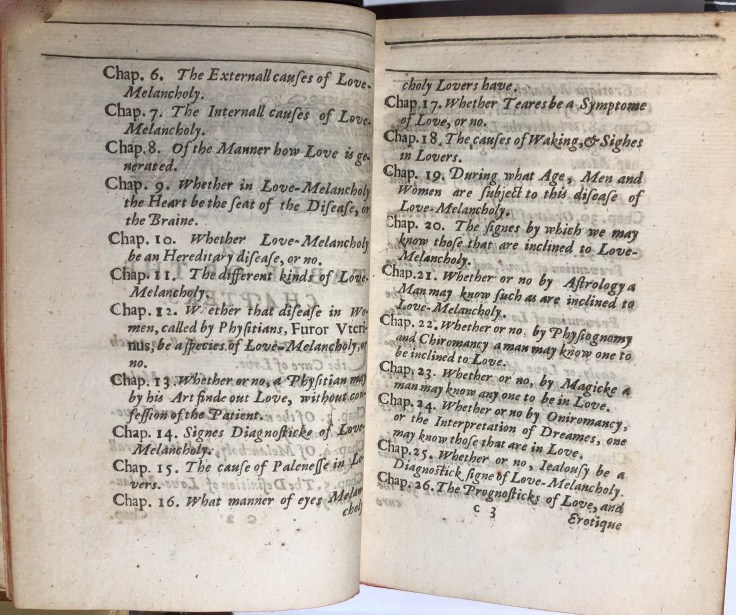 Chap. 6. The Externall cauſes of Love-
Melancholy.
Chap. 7. The Internall cauſes of Love-
Melancholy.
Chap. 8. Of the Manner how Love is ge-
nerated.
Chap. 9. Whether in Love-Melancholy
the Heart be the ſeat of the Diſeaſe, or
the Braine.
Chap. 10. Whether Love-Melancholy
be an Hereditary diſeaſe, or no.
Chap. 11. The different kinds of Love-
Melancholy.
Chap. 12. W ether that diſeaſe in Wo-
men, called by Phyſitians, Furor Vteri-
nus, be a ſpecies of Love-Melancholy, or
no.
Chap. 13. Whether or no, a Phyſitian may
by his Art finde out Love, without con-
feſſion of the Patient.
Chap. 14. Signes Diagnoſticke of Love-
Melancholy.
Chap. 15. The cauſe of Paleneſſe in Lo-
vers.
Chap. 16. What manner of eyes Melan-
choly
choly Lovers have.
Chap. 17. Whether Teares be a Symptome
of Love, or no.
Chap. 18. The cauſes of Waking, & Sighes
in Lovers.
Chap. 19. During what Age, Men and
Women are ſubject to this diſeaſe of
Love-Melancholy.
Chap. 20. The ſignes by which we may
know thoſe that are inclined to Love-
Melancholy.
Chap. 21. Whether or no by Aſtrology a
Man may know ſuch as are inclined to
Love-Melancholy.
Chap. 22. Whether or no, by Phyſiognomy
and Chiromancy a man may know one to
be inclined to Love.
Chap. 23. Whether or no, by Magicke a
man may know any one to be in Love.
Chap. 24. Whether or no by Oniromancy,
or the Interpretation of Dreames, one
may know thoſe that are in Love.
Chap. 25. Whether or no, Iealouſy be a
Diagnoſtick ſigne of Love-Melancholy.
Chap. 26. The Prognoſticks of Love, and
c 3 Erotique